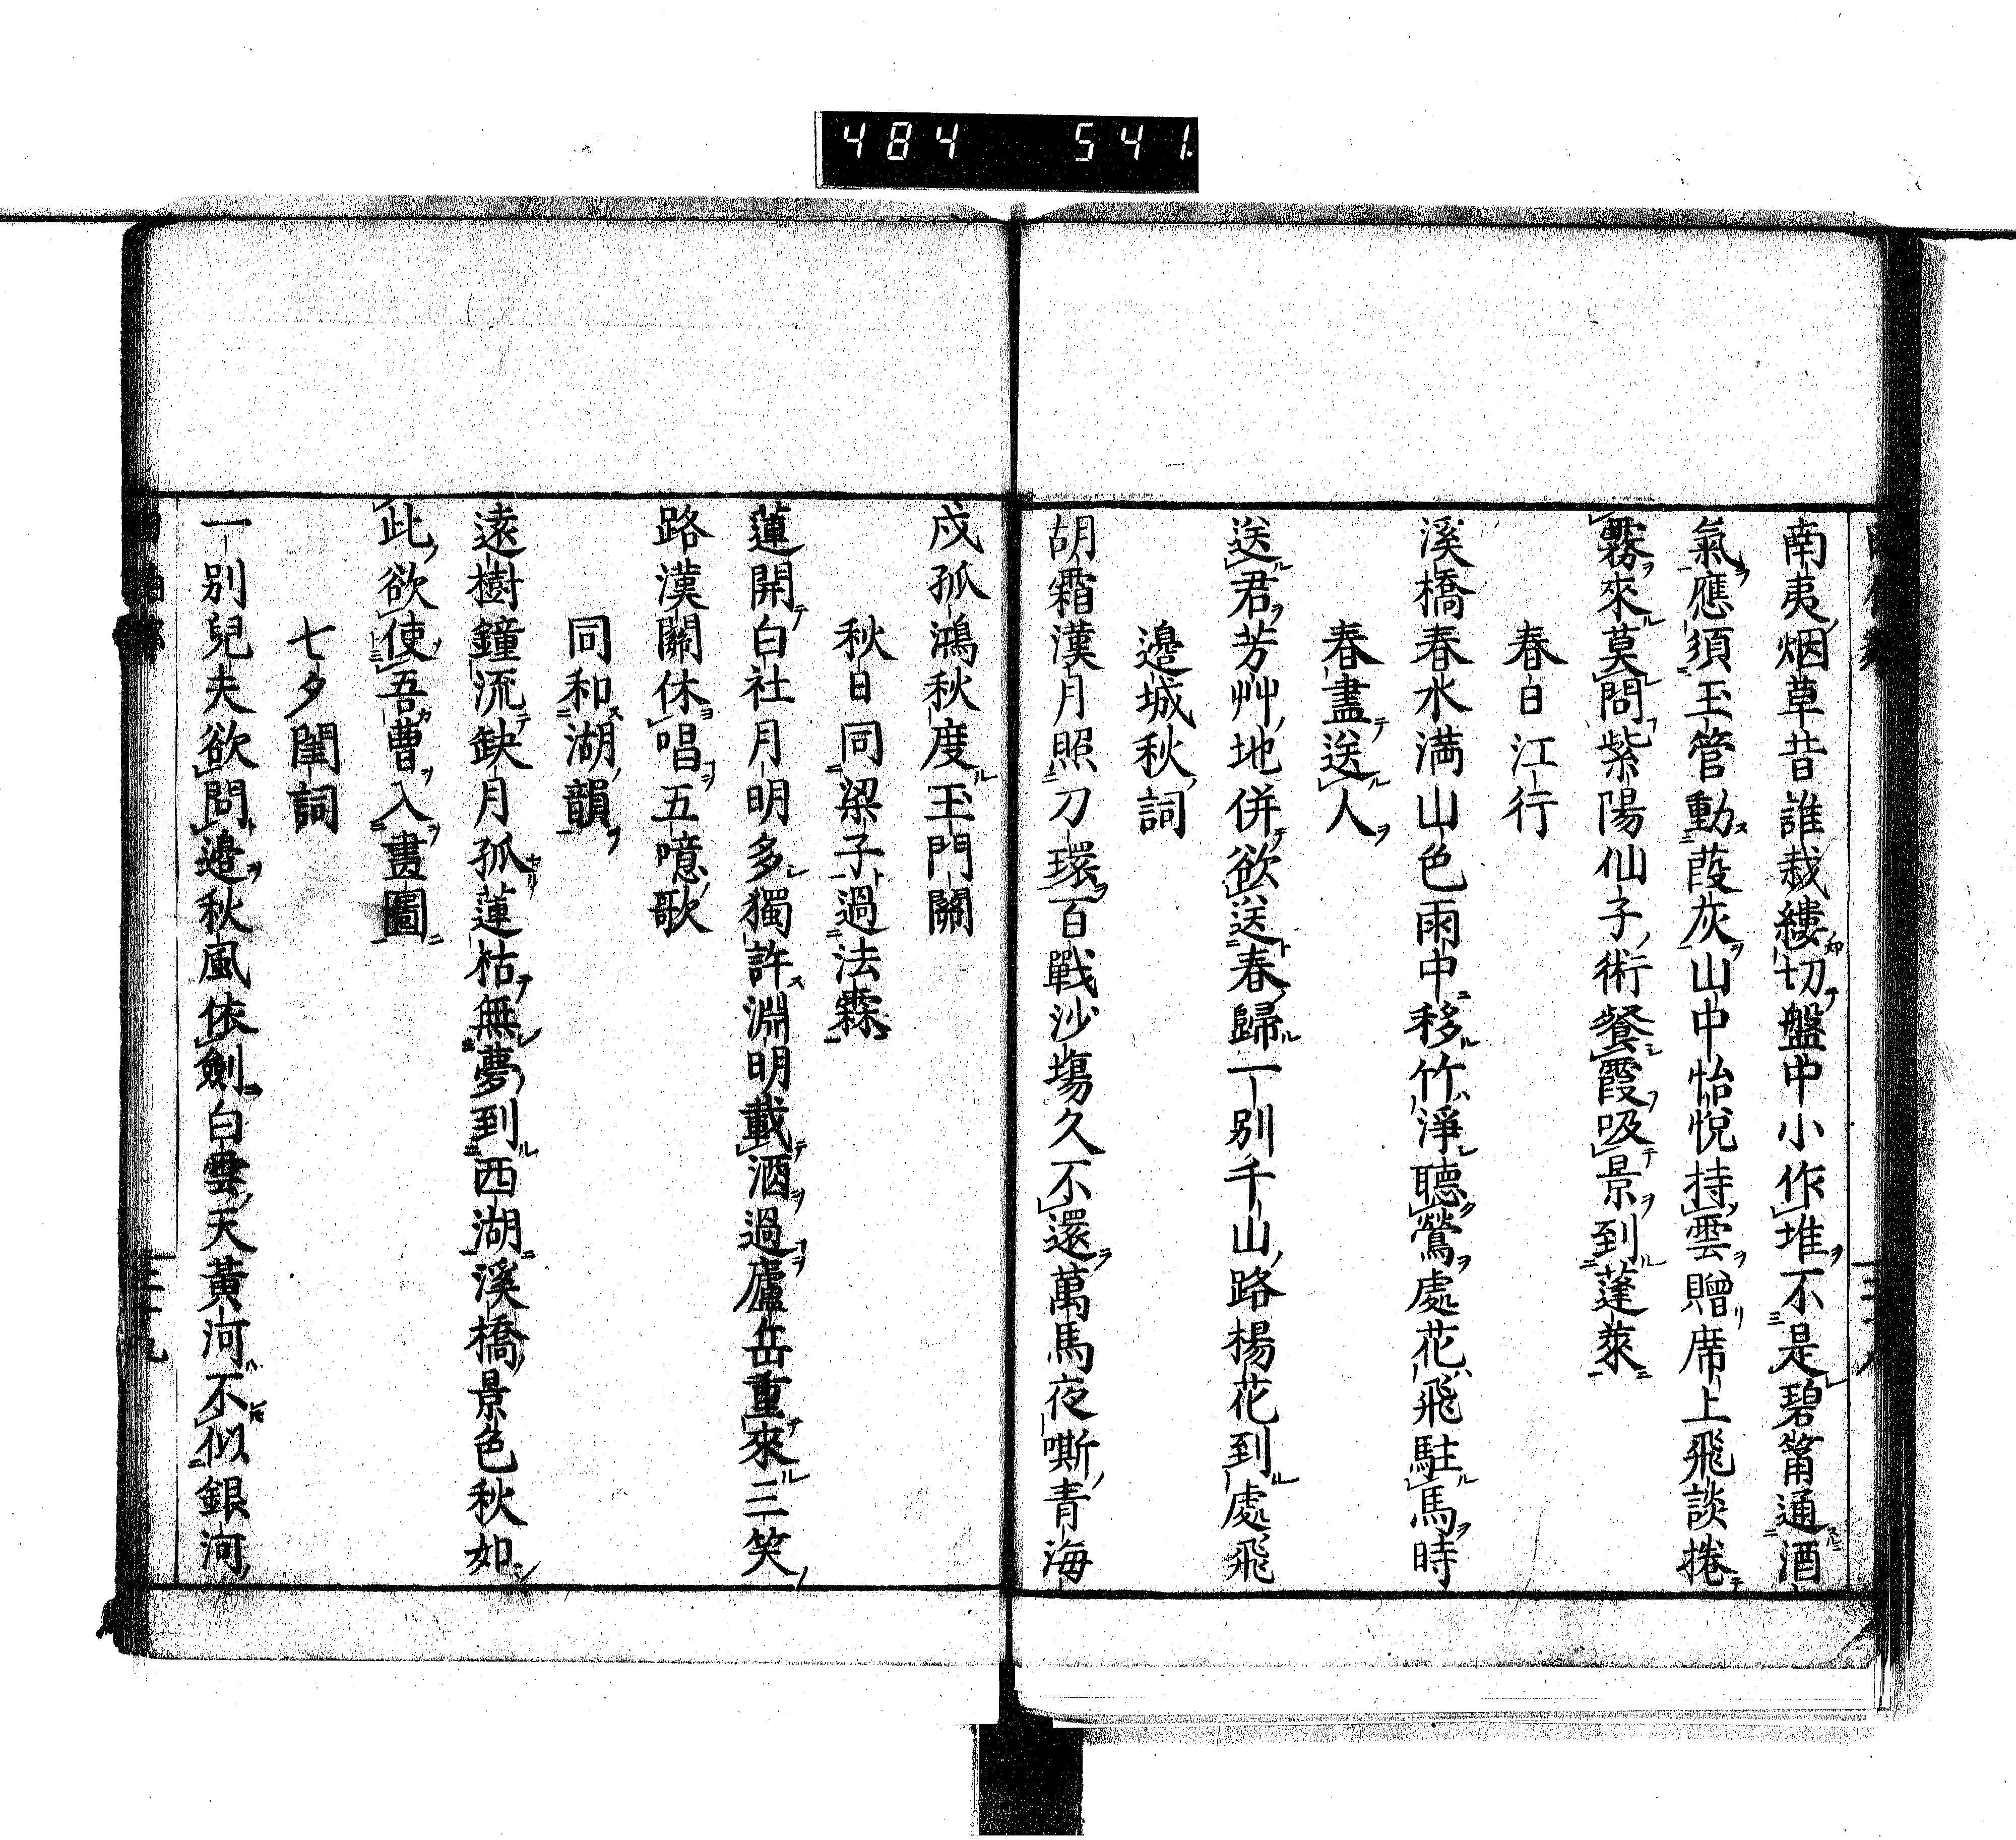 484 541
南夷烟草昔誰栽縷切盤中小作堆不是碧筩通酒
氣應須玉管動葭灰山中怡悅持雲贈席上飛談捲
霧來莫問紫陽仙子術餐霞吸景到蓬萊
春日江行
溪橋春水満山色雨中移竹淨聽鶯處花飛駐馬時
春盡送人
送君芳艸地併欲送春歸一別千山路楊花到處飛
邊城秋詞
胡霜漢月照刀環百戰沙塲久不還萬馬夜嘶青海
戍孤鴻秋度玉門關
秋日同梁子過法霖
蓮開白社月明多獨許淵明載酒過廬岳重來三笑
路漢關休唱五噫歌
同和湖韻
遠樹鐘流缺月孤蓮枯無夢到西湖溪橋景色秋如
此欲使吾曹入畫圖
七夕閨詞
一別兒夫欲問邊秋風依劍白雲天黃河不似銀河
三十九